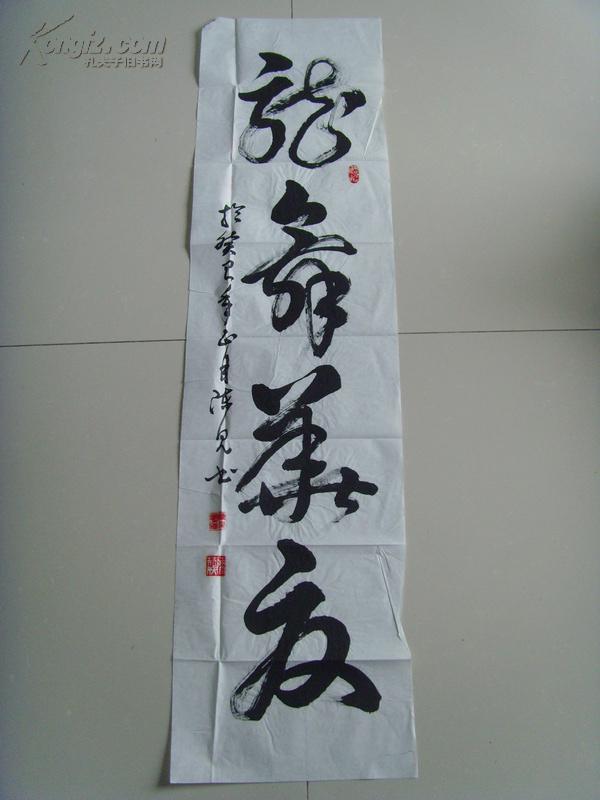 龍舞華夏
於癸巳年正月陈见书
Kongfz.com
孔夫子旧书网